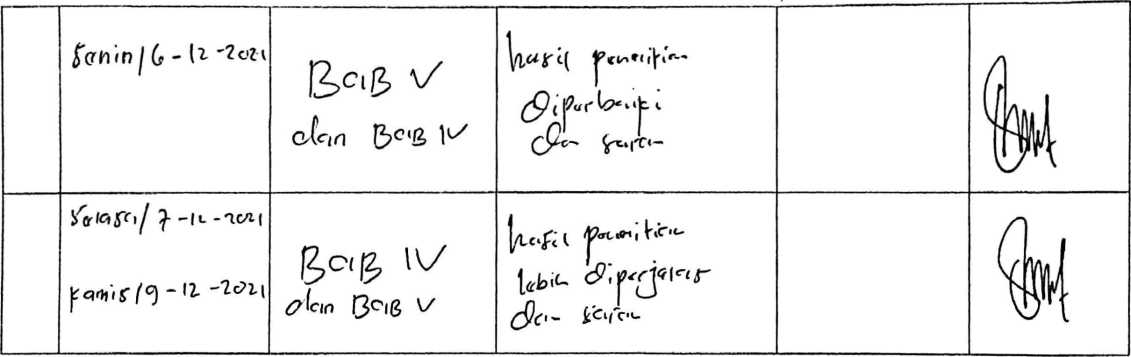 Senin/6-12-2021
BAB V
dan BAB IV
hasil penelitian
diperbaiki
dan saran
Selasa/7-12-2021
Kamis/9-12-2021
BAB IV
dan BAB V
hasil penelitian
lebih diperjelas
dan saran